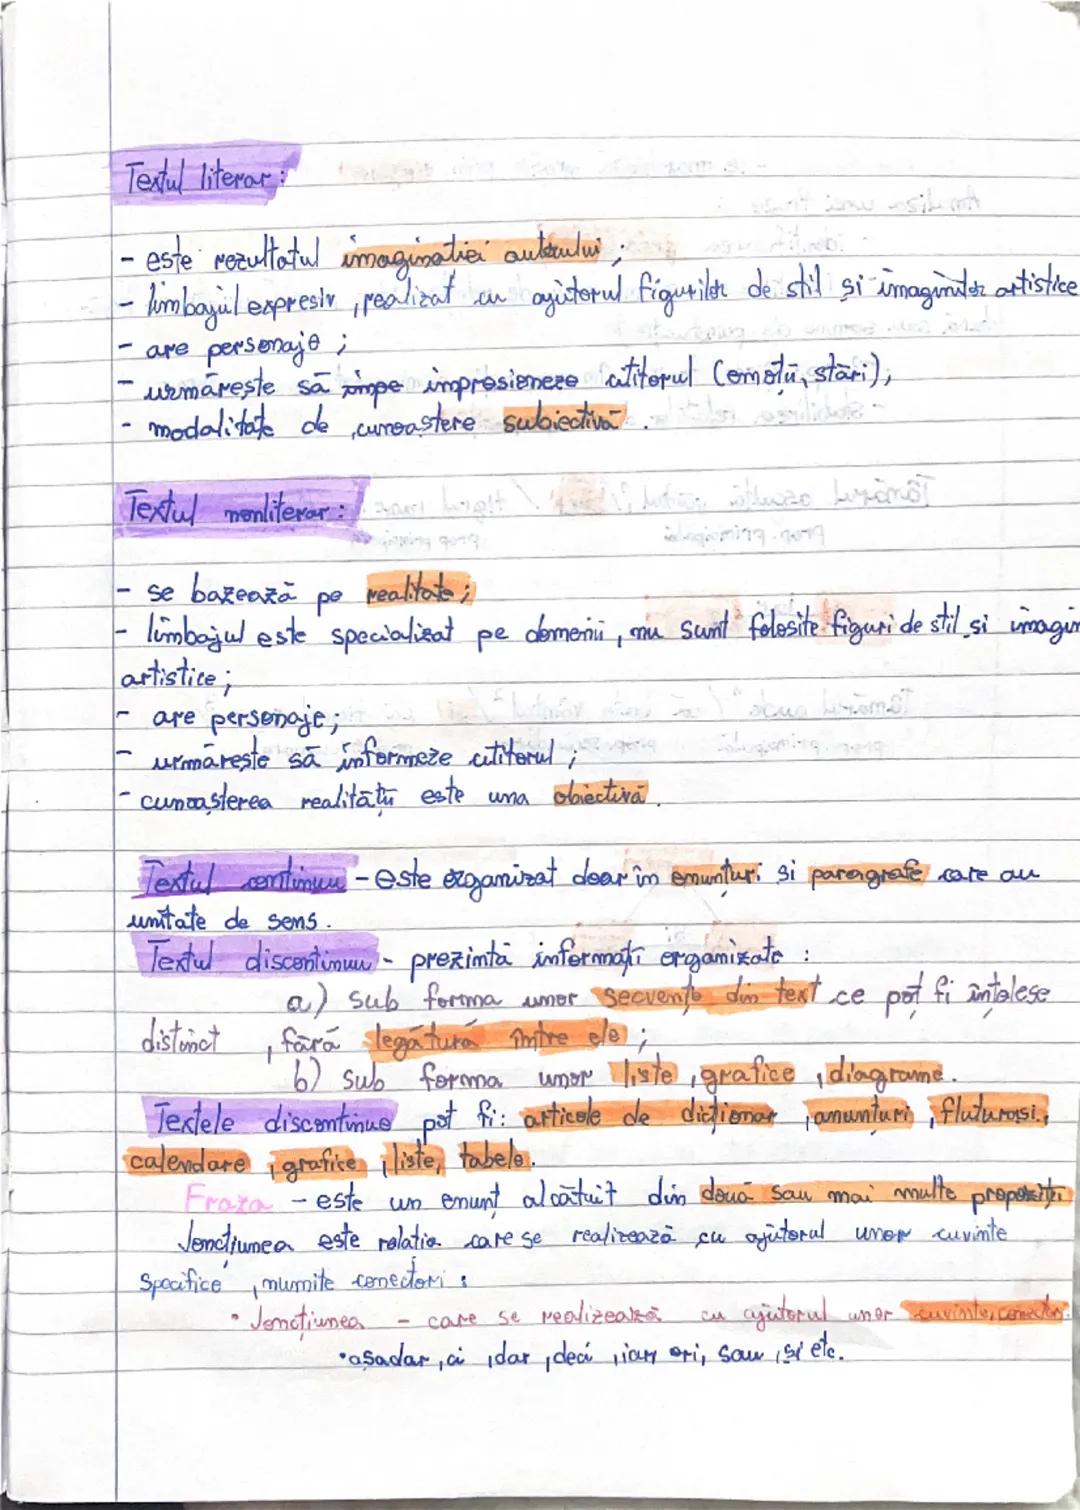 Textul literar:
- este rezultatul imaginației autorului;
- limbajul expresiv, realizat cu ajutorul figurilor de stil și imaginilor artistice
- are personaje;
- urmărește să impresioneze cititorul (emoții, stări),
- modalitate de cunoaștere subiectivă.
Textul nonliterar:
- se bazează pe realitate;
- limbajul este specializat pe domenii, nu sunt folosite figuri de stil și imagin
artistice;
- are personaje;
- urmărește să informeze cititorul;
- cunoașterea realității este una obiectivă.
Textul continuu - este organizat doar în enunțuri și paragrafe care au
unitate de sens.
Textul discontinuu - prezintă informații organizate:
a) sub forma unor secvențe din text ce pot fi înțelese
distinct, fără legătură între ele;
b) sub forma unor liste, grafice, diagrame.
Textele discontinue pot fi: articole de dicționar, anunțuri, fluturași,
calendare, grafice, liste, tabele.
Fraza - este un enunț alcătuit din două sau mai multe propoziții
Joncțiunea este relația care se realizează cu ajutorul unor cuvinte
specifice, numite conectori:
• Joncțiunea - care se realizează cu ajutorul unor cuvinte, conectori.
• așadar, ci, dar, deci, iar, ori, sau, și etc.